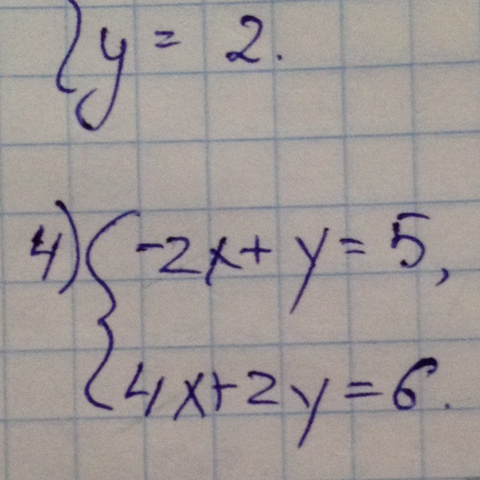 y = 2.
4) { -2x + y = 5,
4x + 2y = 6.